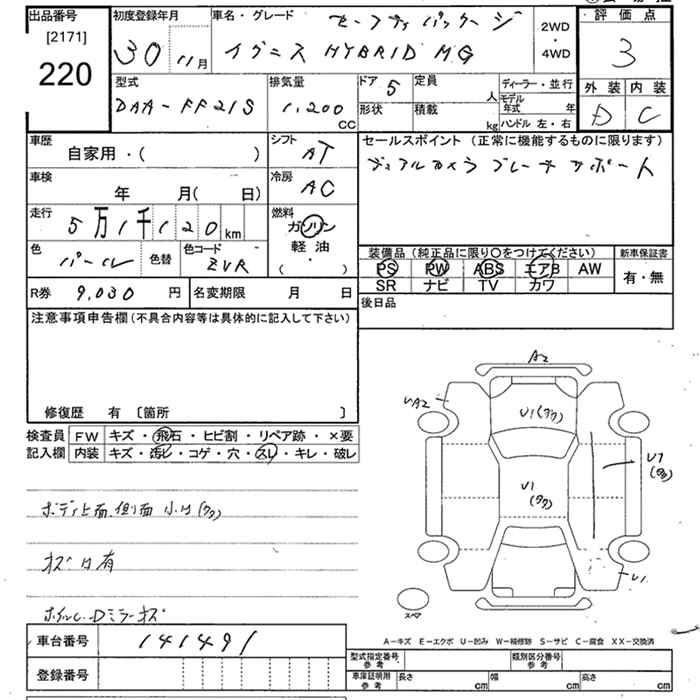 出品番号
[2171]
220
初度登録年月
30 11月
車名・グレード
セーフティパッケージ
イグニス HYBRID MG
2WD
・
4WD
評価点
3
外装 内装
D C
型式
DAA-FF21S
排気量
1,200
CC
ドア 5
定員
人
形状
積載
kg
ディーラー・並行
モデル年式 年
ハンドル 左・右
車歴
自家用・( )
シフト
AT
セールスポイント (正常に機能するものに限ります)
デュアルカメラブレーキサポート
車検
年 月( 日)
冷房
AC
走行
5万1千120km
燃料
ガソリン
軽油
・( )
色
パール
色替
色コード
ZVR
装備品 (純正品に限り〇をつけてください)
PS PW ABS エアB AW
SR ナビ TV カワ
新車保証書
有・無
R券 9,030 円
名変期限 月 日
後日品
注意事項申告欄 (不具合内容等は具体的に記入して下さい)
修復歴 有 〔箇所 〕
検査員
記入欄
FW キズ・飛石・ヒビ割・リペア跡・×要
内装 キズ・汚レ・コゲ・穴・スレ・キレ・破レ
ボディ上面、側面 小U(タク)
キズU有
A2
UA2
U1(タク)
U1
(タク)
U7
(タク)
U1
スペア
A-キズ E-エクボ U-凹み W-補修跡 S-サビ C-腐食 XX-交換済
車台番号 141491
登録番号
型式指定番号
参考
類別区分番号
参考
車庫証明用
参考
長さ cm
幅 cm
高さ cm